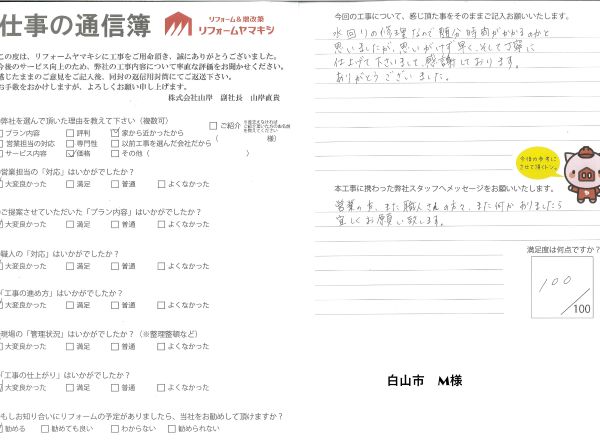 仕事の通信簿
リフォーム&増改築
リフォームヤマキシ
この度は、リフォームヤマキシに工事をご用命頂き、誠にありがとうございました。
今後のサービス向上のため、弊社の工事内容について率直な評価をお聞かせください。
感じたままのご意見をご記入後、同封の返信用封筒にてご返送下さい。
お手数をおかけしますが、よろしくお願い申し上げます。
株式会社山岸 副社長 山岸直貴
弊社を選んで頂いた理由を教えて下さい(複数可)
プラン内容 評判 家から近かったから
営業担当の対応 専門性 以前工事を選んだ会社だから
サービス内容 価格 その他( )
ご紹介 ( 様)
営業担当の「対応」はいかがでしたか?
大変良かった 満足 普通 よくなかった
ご提案させていただいた「プラン内容」はいかがでしたか?
大変良かった 満足 普通 よくなかった
職人の「対応」はいかがでしたか?
大変良かった 満足 普通 よくなかった
「工事の進め方」はいかがでしたか?
大変良かった 満足 普通 よくなかった
現場の「管理状況」はいかがでしたか?(※整理整頓など)
大変良かった 満足 普通 よくなかった
「工事の仕上がり」はいかがでしたか?
大変良かった 満足 普通 よくなかった
もしお知り合いにリフォームの予定がありましたら、当社をお勧めして頂けますか?
勧める 勧めても良い わからない 勧められない
今回の工事について、感じ頂た事をそのままご記入お願いいたします。
水回りの修理なので随分時間がかかるのかと
思いましたが、思いがけず早く、そしてご寧に
仕上げて下さいまして、感謝しております。
ありがとうございました。
今後の参考に
させて頂くトン。
本工事に携わった弊社スタッフへメッセージをお願いいたします。
営業の方、また職人さんの方々、また何かありましたら
宜しくお願い致します。
満足度は何点ですか?
100
/100
白山市 M様